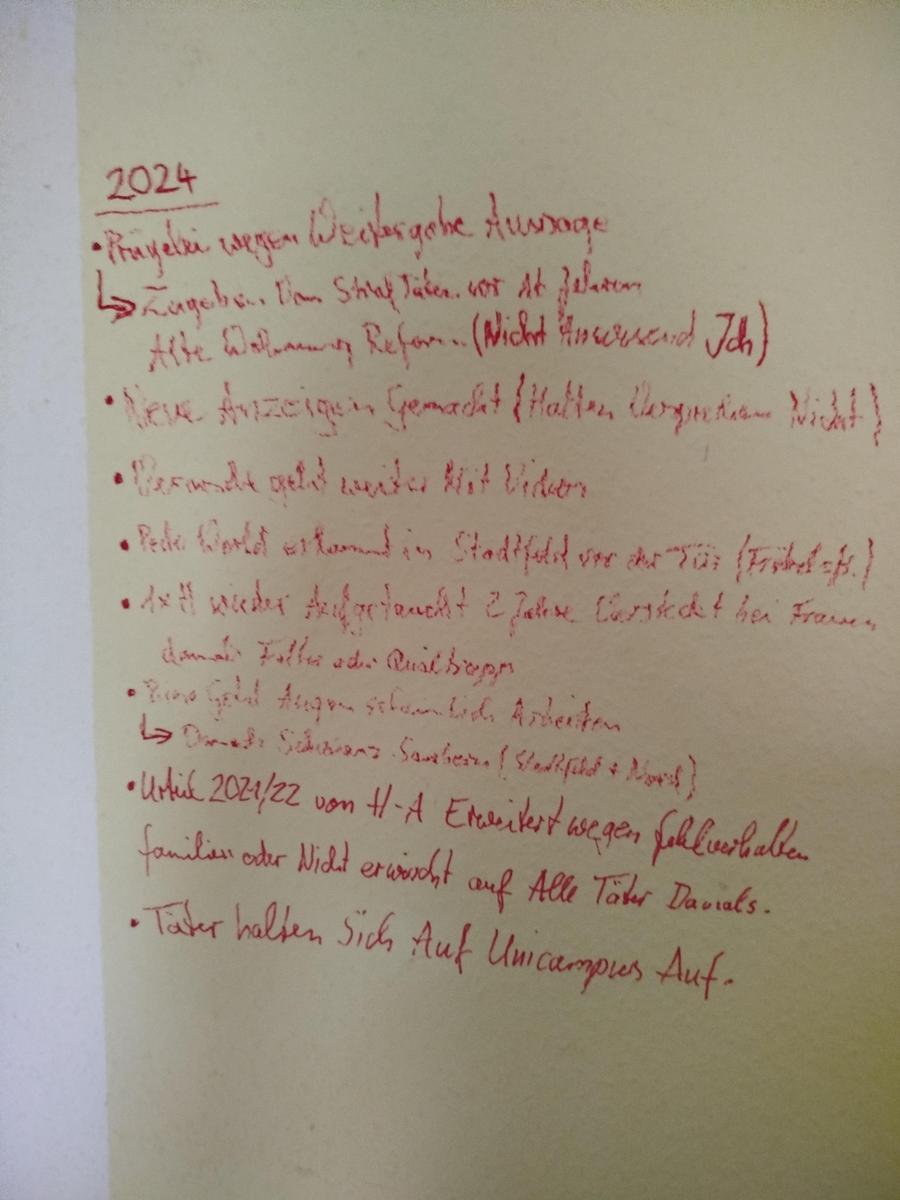 2024
• Prügelei wegen Weitergabe Aussage
↳ Zugeben. Von Straftäten vor Jahren
Alte Wohnung Reform.. (Nicht Anwesend Ich)
• Neue Anzeigen Gemacht (Halten Versprechen Nicht)
• geht weiter Mit
• World in Stadtfeld vor der Tür
• 1x H wieder Aufgetaucht 2 Jahre Versteckt bei Frauen
damals Folter oder
• Geld Augenscheinlich Arbeiten
↳ (Stadtfeld + Nord)
• Urteil 2021/22 von H-A Erweitert wegen fehlverhalten
familien oder Nicht erwischt auf Alle Täter Damals.
• Täter halten Sich Auf Unicampus Auf.